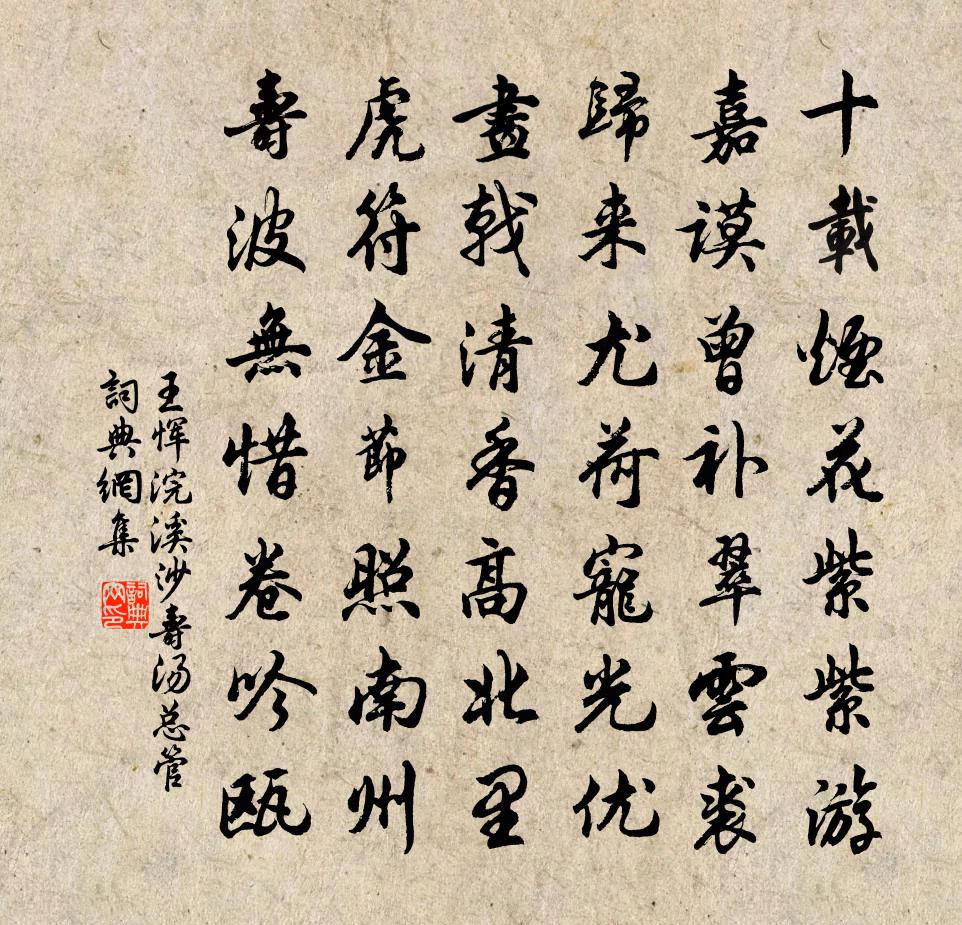 十載煙花紫紫游
嘉謨曾补翠雲裘
歸来尤荷寵光优
畫戟清香高北里
虎符金節照南州
壽波無惜卷吟瓯
王恽浣溪沙壽汤总管
詞典網集
詞典网印